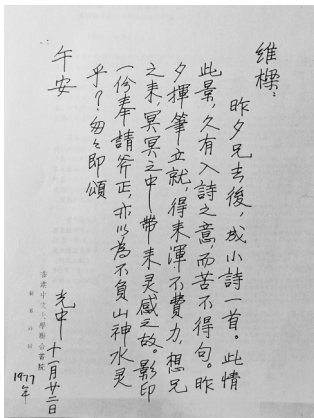 維樑：
昨夕兄去後，成小詩一首。此情
此景，久有入詩之意，而苦不得句。昨
夕揮筆立就，得来渾不費力，想兄
之来，冥冥之中带来灵感之故。影印
一份奉請斧正，亦以為不負山神水灵
乎？匆匆即頌
午安
光中 十一月廿二日
1977年
香港中文大學聯合書院